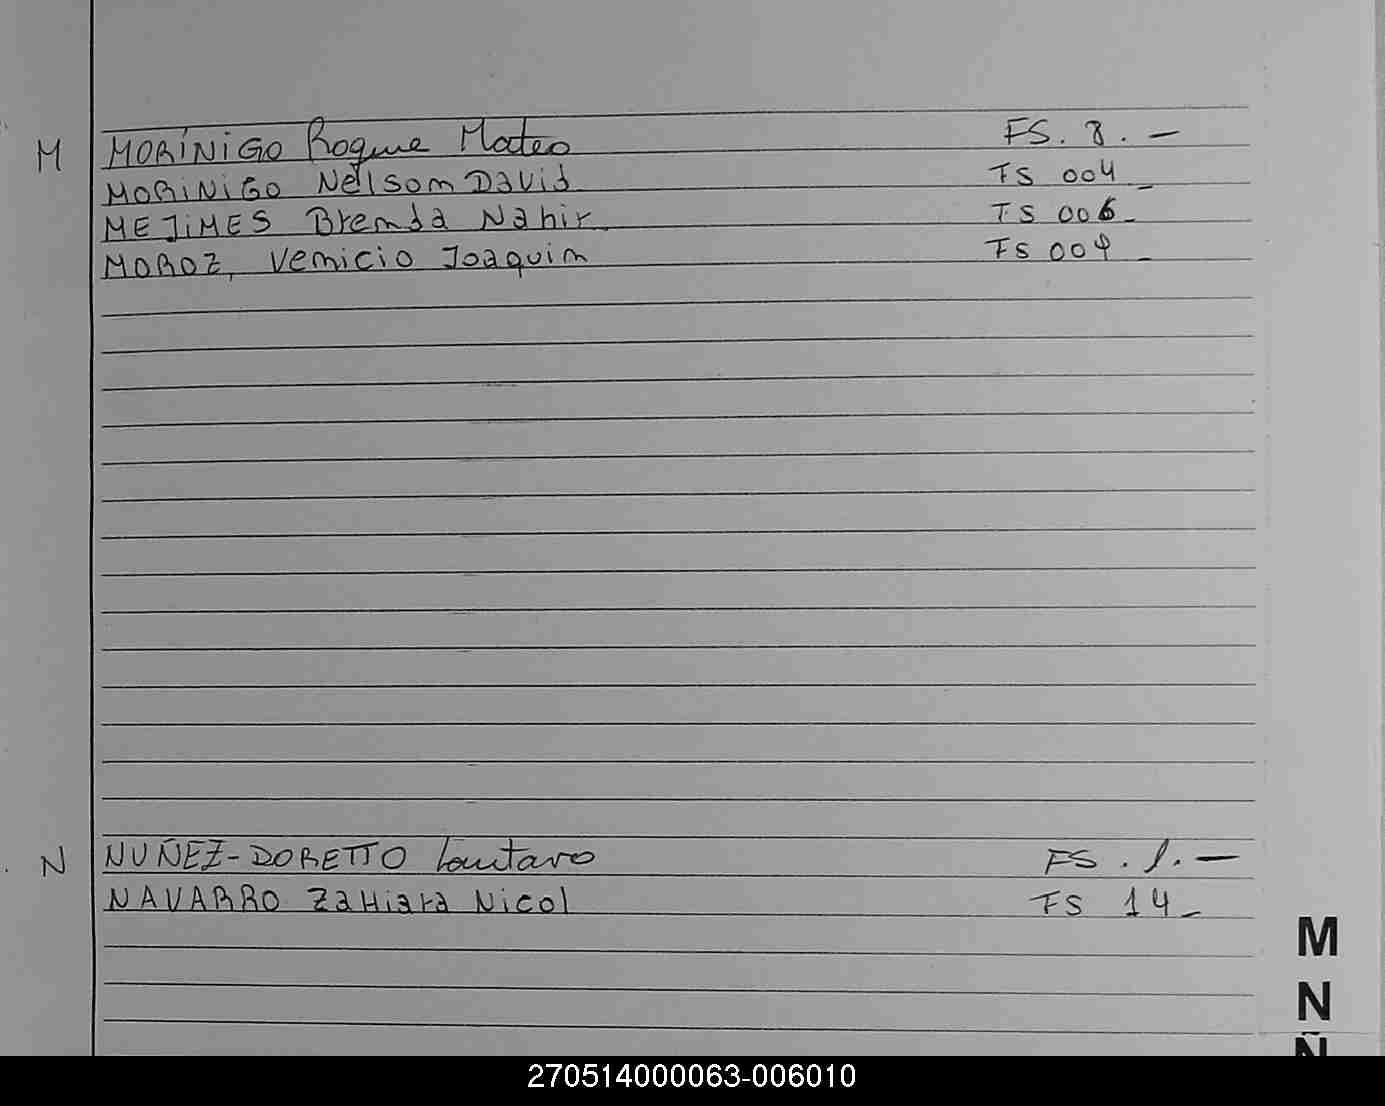 M MORÍNIGO Roque Mateo FS. 8. —
MORINIGO Nelsom David FS 004 _
MEJIMES Bremda Nahir. FS 006 _
MOROZ, Vemicio Joaquim FS 009 _
N NUÑEZ-DORETTO Lautaro FS. 1. —
NAVARRO ZaHiara Nicol FS 14 _
M
N
Ñ
270514000063-006010